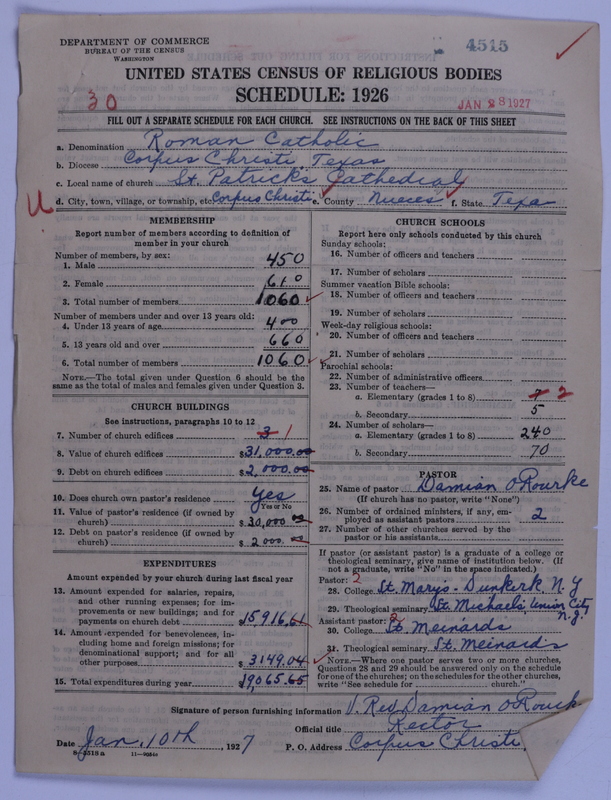 DEPARTMENT OF COMMERCE
BUREAU OF THE CENSUS
WASHINGTON
4515
UNITED STATES CENSUS OF RELIGIOUS BODIES
SCHEDULE: 1926
30
JAN 28 1927
FILL OUT A SEPARATE SCHEDULE FOR EACH CHURCH. SEE INSTRUCTIONS ON THE BACK OF THIS SHEET
a. Denomination Roman Catholic
b. Diocese Corpus Christi, Texas
c. Local name of church St. Patrick's Cathedral
d. City, town, village, or township, etc. Corpus Christi e. County Nueces f. State Texa
U
MEMBERSHIP
Report number of members according to definition of
member in your church
Number of members, by sex:
1. Male 450
2. Female 610
3. Total number of members 1060
Number of members under and over 13 years old:
4. Under 13 years of age 400
5. 13 years old and over 660
6. Total number of members 1060
NOTE.—The total given under Question 6 should be the
same as the total of males and females given under Question 3.
CHURCH BUILDINGS
See instructions, paragraphs 10 to 12
7. Number of church edifices 3 1
8. Value of church edifices $31,000.00
9. Debt on church edifices $2,000.00
10. Does church own pastor's residence Yes
Yes or No
11. Value of pastor's residence (if owned by
church) $30,000.00
12. Debt on pastor's residence (if owned by
church) $2000.00
EXPENDITURES
Amount expended by your church during last fiscal year
13. Amount expended for salaries, repairs,
and other running expenses; for im-
provements or new buildings; and for
payments on church debt $15916.61
14. Amount expended for benevolences, in-
cluding home and foreign missions; for
denominational support; and for all
other purposes $3149.04
15. Total expenditures during year $19,065.65
CHURCH SCHOOLS
Report here only schools conducted by this church
Sunday schools:
16. Number of officers and teachers
17. Number of scholars
Summer vacation Bible schools:
18. Number of officers and teachers
19. Number of scholars
Week-day religious schools:
20. Number of officers and teachers
21. Number of scholars
Parochial schools:
22. Number of administrative officers
23. Number of teachers—
a. Elementary (grades 1 to 8) 7 2
b. Secondary 5
24. Number of scholars—
a. Elementary (grades 1 to 8) 240
b. Secondary 70
PASTOR
25. Name of pastor Damian O'Rourke
(If church has no pastor, write "None")
26. Number of ordained ministers, if any, em-
ployed as assistant pastors 2
27. Number of other churches served by the
pastor or his assistants
If pastor (or assistant pastor) is a graduate of a college or
theological seminary, give name of institution below. (If
not a graduate, write "No" in the space indicated.)
Pastor: 2
28. College St. Mary's - Dunkerk, N.Y
29. Theological seminary St. Michael's Union City
N.J.
Assistant pastor: 2
30. College St. Meinards
31. Theological seminary St. Meinard's
NOTE.—Where one pastor serves two or more churches,
Questions 28 and 29 should be answered only on the schedule
for one of the churches; on the schedules for the other churches,
write "See schedule for church."
Signature of person furnishing information V. Rev Damian O'Rourk
Official title Rector
Date Jan, 10th, 1927 P. O. Address Corpus Christi
8-5518a 11-9084